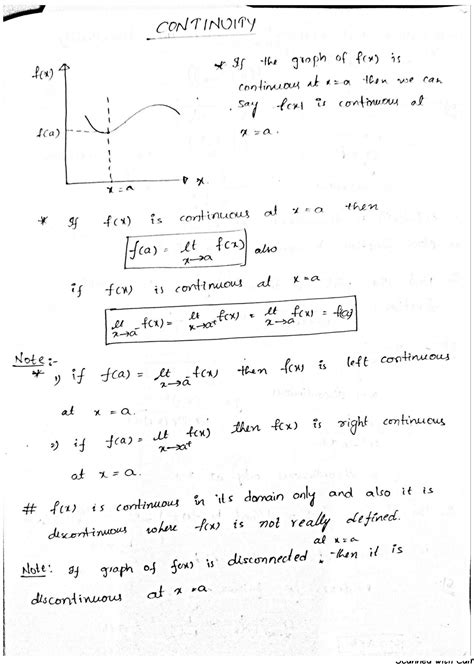 CONTINUITY
* If the graph of f(x) is
continuous at x=a then we can
say f(x) is continuous at
x=a.
f(x)
f(a)
x=a
x
* If f(x) is continuous at x=a then
f(a) = lt x→a f(x) also
if f(x) is continuous at x=a
lt x→a⁻ f(x) = lt x→a⁺ f(x) = lt x→a f(x) = f(a)
Note:-
* 1) if f(a) = lt x→a⁻ f(x) then f(x) is left continuous
at x=a.
2) if f(a) = lt x→a⁺ f(x) then f(x) is right continuous
at x=a.
# f(x) is continuous in its domain only and also it is
discontinuous where f(x) is not really defined.
Note: If graph of f(x) is disconnected at x=a then it is
discontinuous at x=a.
Scanned with